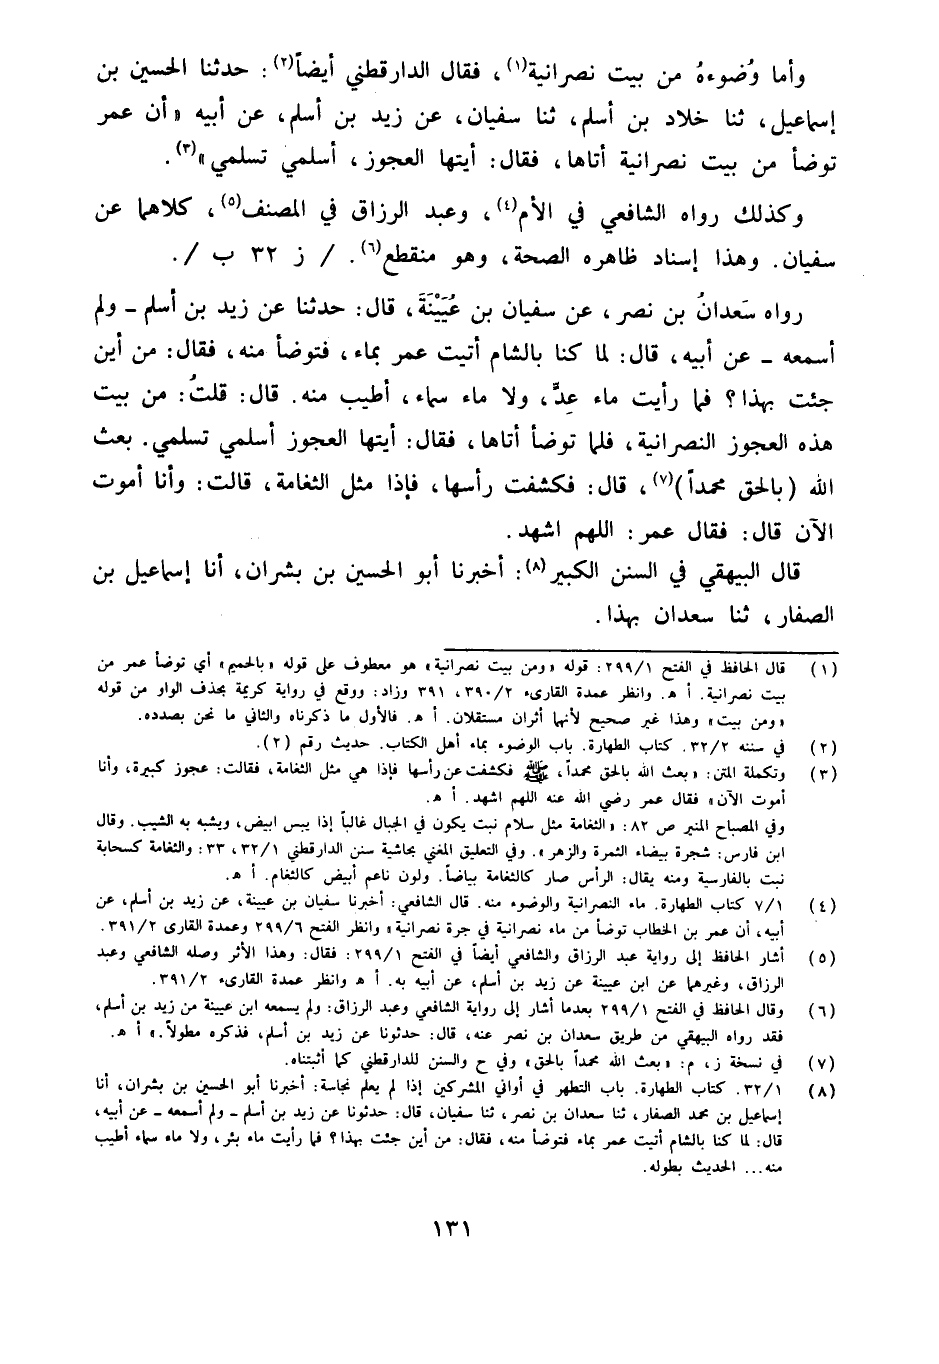 وأما وُضوءهُ من بيت نصرانية(١)، فقال الدارقطني أيضاً(٢): حدثنا الحسين بن
إسماعيل، ثنا خلاد بن أسلم، ثنا سفيان، عن زيد بن أسلم، عن أبيه «أن عمر
توضأ من بيت نصرانية أتاها، فقال: أيتها العجوز، أسلمي تسلمي»(٣).
وكذلك رواه الشافعي في الأم(٤)، وعبد الرزاق في المصنف(٥)، كلاهما عن
سفيان. وهذا إسناد ظاهره الصحة، وهو منقطع(٦). / ز ٣٢ ب /.
رواه سَعدانُ بن نصر، عن سفيان بن عُيَيْنَةَ، قال: حدثنا عن زيد بن أسلم ـ ولم
أسمعه ـ عن أبيه، قال: لما كنا بالشام أتيت عمر بماء، فتوضأ منه، فقال: من أين
جئت بهذا؟ فما رأيت ماء عِدٍّ، ولا ماء سماء، أطيب منه. قال: قلتُ: من بيت
هذه العجوز النصرانية، فلما توضأ أتاها، فقال: أيتها العجوز أسلمي تسلمي. بعث
الله (بالحق محمداً)(٧)، قال: فكشفت رأسها، فإذا مثل الثغامة، قالت: وأنا أموت
الآن قال: فقال عمر: اللهم اشهد.
قال البيهقي في السنن الكبير(٨): أخبرنا أبو الحسين بن بشران، أنا إسماعيل بن
الصفار، ثنا سعدان بهذا.
(١) قال الحافظ في الفتح ٢٩٩/١: قوله «ومن بيت نصرانية» هو معطوف على قوله «بالحميم» أي توضأ عمر من
بيت نصرانية. أ هـ. وانظر عمدة القارىء ٣٩٠/٢، ٣٩١ وزاد: ووقع في رواية كريمة بحذف الواو من قوله
«ومن بيت» وهذا غير صحيح لأنهما أثران مستقلان. أ هـ. فالأول ما ذكرناه والثاني ما نحن بصدده.
(٢) في سننه ٣٢/٢. كتاب الطهارة. باب الوضوء بماء أهل الكتاب. حديث رقم (٢).
(٣) وتكملة المتن: «بعث الله بالحق محمداً، ﷺ فكشفت عن رأسها فإذا هي مثل الثغامة، فقالت: عجوز كبيرة، وأنا
أموت الآن» فقال عمر رضي الله عنه اللهم اشهد. أ هـ.
وفي المصباح المنير ص ٨٢: «الثغامة مثل سلام نبت يكون في الجبال غالباً إذا يبس ابيض، ويشبه به الشيب. وقال
ابن فارس: شجرة بيضاء الثمرة والزهر». وفي التعليق المغني بحاشية سنن الدارقطني ٣٢/١، ٣٣: والثغامة كسحابة
نبت بالفارسية ومنه يقال: الرأس صار كالثغامة بياضاً. ولون ناعم أبيض كالثغام. أ هـ.
(٤) ٧/١ كتاب الطهارة. ماء النصرانية والوضوء منه. قال الشافعي: أخبرنا سفيان بن عيينة، عن زيد بن أسلم، عن
أبيه، أن عمر بن الخطاب توضأ من ماء نصرانية في جرة نصرانية» وانظر الفتح ٢٩٩/٦ وعمدة القارى ٣٩١/٢.
(٥) أشار الحافظ إلى رواية عبد الرزاق والشافعي أيضاً في الفتح ٢٩٩/١: فقال: وهذا الأثر وصله الشافعي وعبد
الرزاق، وغيرهما عن ابن عيينة عن زيد بن أسلم، عن أبيه به. أ هـ وانظر عمدة القارىء ٣٩١/٢.
(٦) وقال الحافظ في الفتح ٢٩٩/١ بعدما أشار إلى رواية الشافعي وعبد الرزاق: ولم يسمعه ابن عيينة من زيد بن أسلم،
فقد رواه البيهقي من طريق سعدان بن نصر عنه، قال: حدثونا عن زيد بن أسلم، فذكره مطولاً.» أ هـ.
(٧) في نسخة ز، م: «بعث الله محمداً بالحق» وفي ح والسنن للدارقطني كما أثبتناه.
(٨) ٣٢/١. كتاب الطهارة. باب التطهر في أواني المشركين إذا لم يعلم نجاسة: أخبرنا أبو الحسين بن بشران، أنا
إسماعيل بن محمد الصفار، ثنا سعدان بن نصر، ثنا سفيان، قال: حدثونا عن زيد بن أسلم ـ ولم أسمعه ـ عن أبيه،
قال: لما كنا بالشام أتيت عمر بماء فتوضأ منه، فقال: من أين جئت بهذا؟ فما رأيت ماء بئر، ولا ماء سماء أطيب
منه... الحديث بطوله.
١٣١